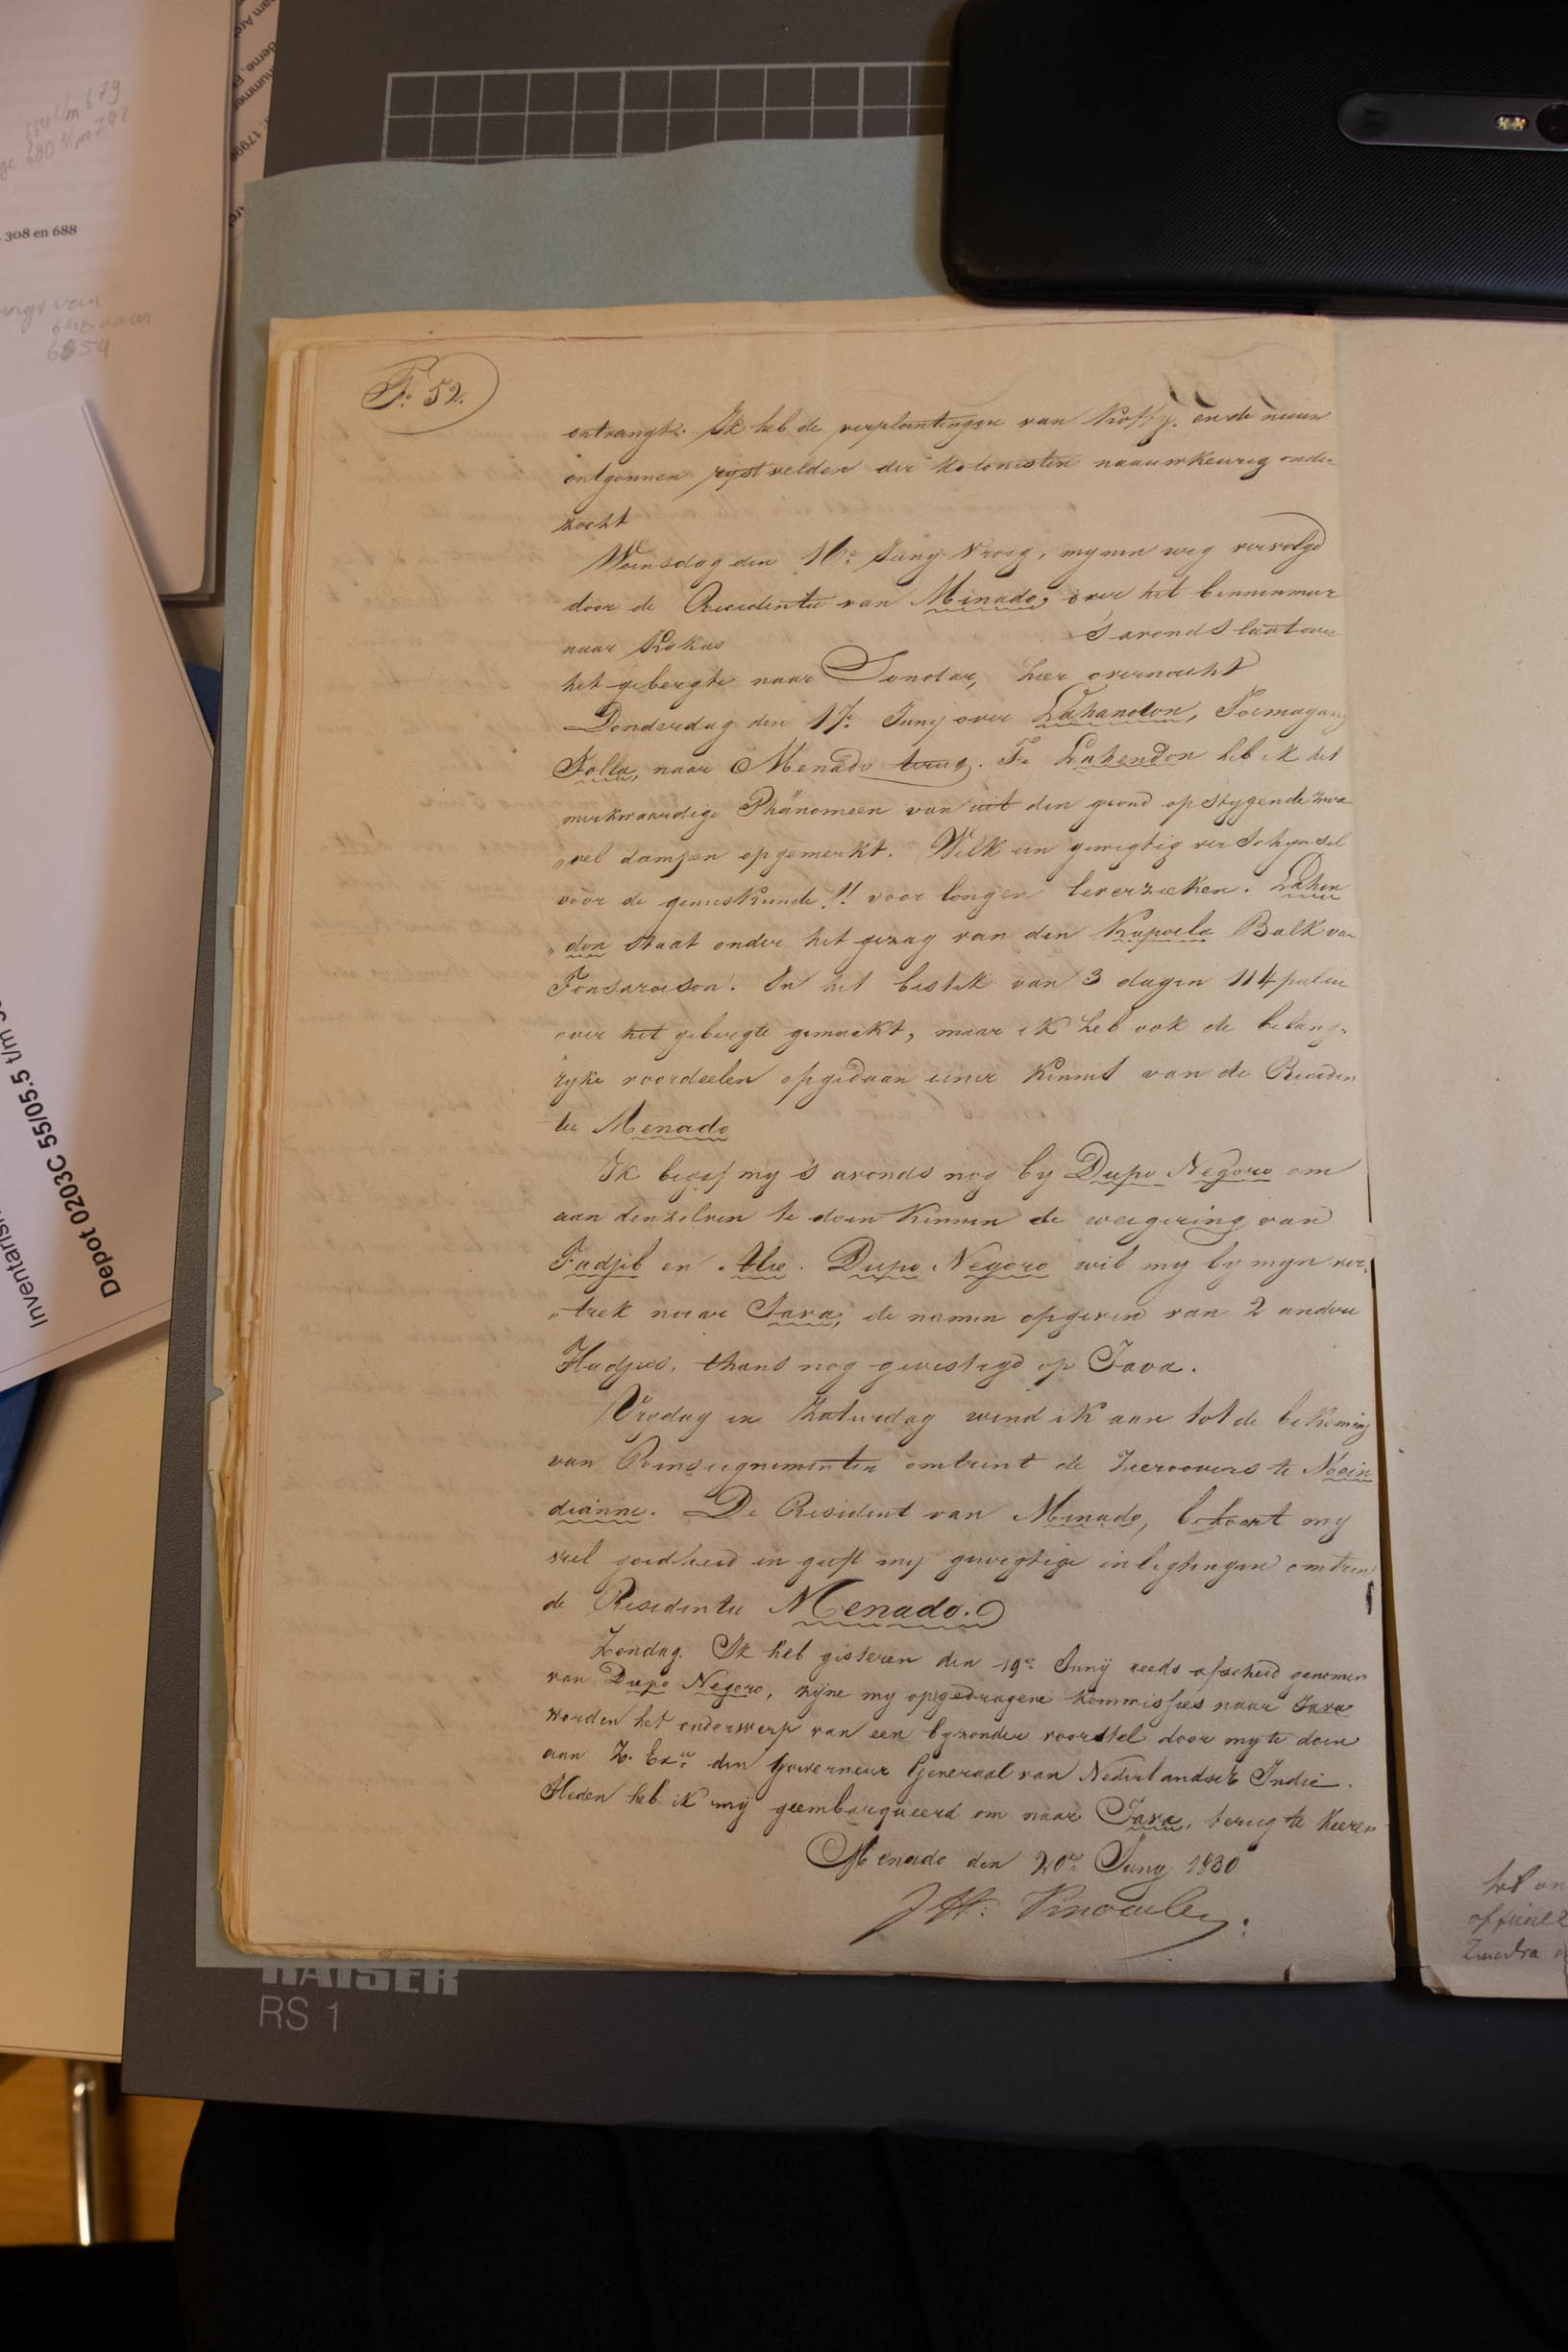 680 t/m 742
308 en 688
6854
Inventaris
Depot 0203C 55/05.5 t/m
F.o 52.
ontvangt. Ik heb de verplantingen van Koffy. en de nieuw
ontgonnen rystvelden der Kolonisten naauwkeurig onder
zocht
Woensdag den 16e Juny vroeg, mynen weg vervolgd
door de Residentie van Menado, over het binnenmeer
naar Kakas 's avonds laat over
het gebergte naar Sonder, hier overnacht
Donderdag den 17e Juny over Lahendon, Toemagang
Lolla, naar Menado terug. Te Lahendon heb ik het
merkwaardige Phänomeen van uit den grond opstygende zwa
„vel dampen opgemerkt. Welk een gewigtig verschynsel
voor de geneeskunde!! voor longen leverzieken. Lahen
„don staat onder het gezag van den Kapoela Balk van
In het bestek van 3 dagen 114 palen
over het gebergte gemaakt, maar ik heb ook de belang-
ryke voordeelen opgedaan eener kennis van de Residen
tie Menado
Ik begaf my 's avonds nog by Dupo Negoro om
aan denzelven te doen kennen de weigering van
Tadjib en Alie. Dupo Negoro wil my by myn ver-
„trek naar Java, de namen opgeven van 2 andere
Hadjies, thans nog gevestigd op Java.
Vrydag en Zaturdag wend ik aan tot de bekoming
van Renseignementen omtrent de Zeeroovers te
De Resident van Menado, betoont my
veel goedheid en geeft my gewigtige inlightingen omtren
de Residentie Menado.
Zondag. Ik heb gisteren den 19en Junÿ reeds afscheid genomen
van Dupo Negoro, zÿne my opgedragene kommissies naar Java
worden het onderwerp van een byzonder voorstel door my te doen
aan Z. Exie den Gouverneur Generaal van Nederlandsch Indie.
Heden heb ik mÿ geembarqueerd om naar Java, terug te keeren
Menado den 20en Juny 1830
J H: Knoerle
KAISER
RS 1